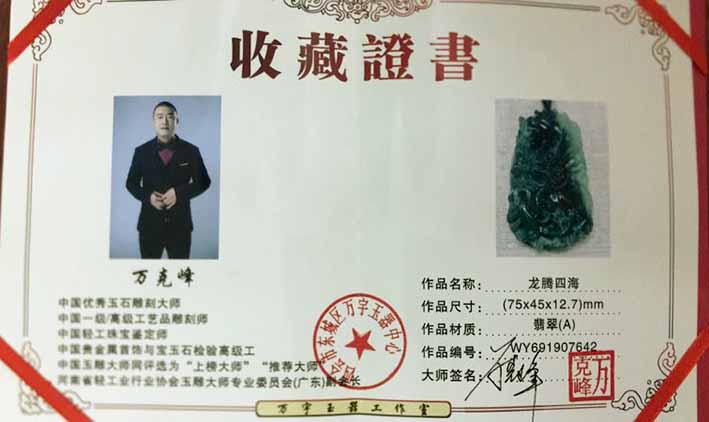 收藏證書
万克峰
中国优秀玉石雕刻大师
中国一级/高级工艺品雕刻师
中国轻工珠宝鉴定师
中国贵金属首饰与宝玉石检验高级工
中国玉雕大师网评选为“上榜大师”“推荐大师”
河南省轻工业行业协会玉雕大师专业委员会(广东)副会长
四会市东城区万宇玉器中心
作品名称: 龙腾四海
作品尺寸: (75x45x12.7)mm
作品材质: 翡翠(A)
作品编号: WY691907642
大师签名: 万克峰
万克峰
万宇玉器工作室